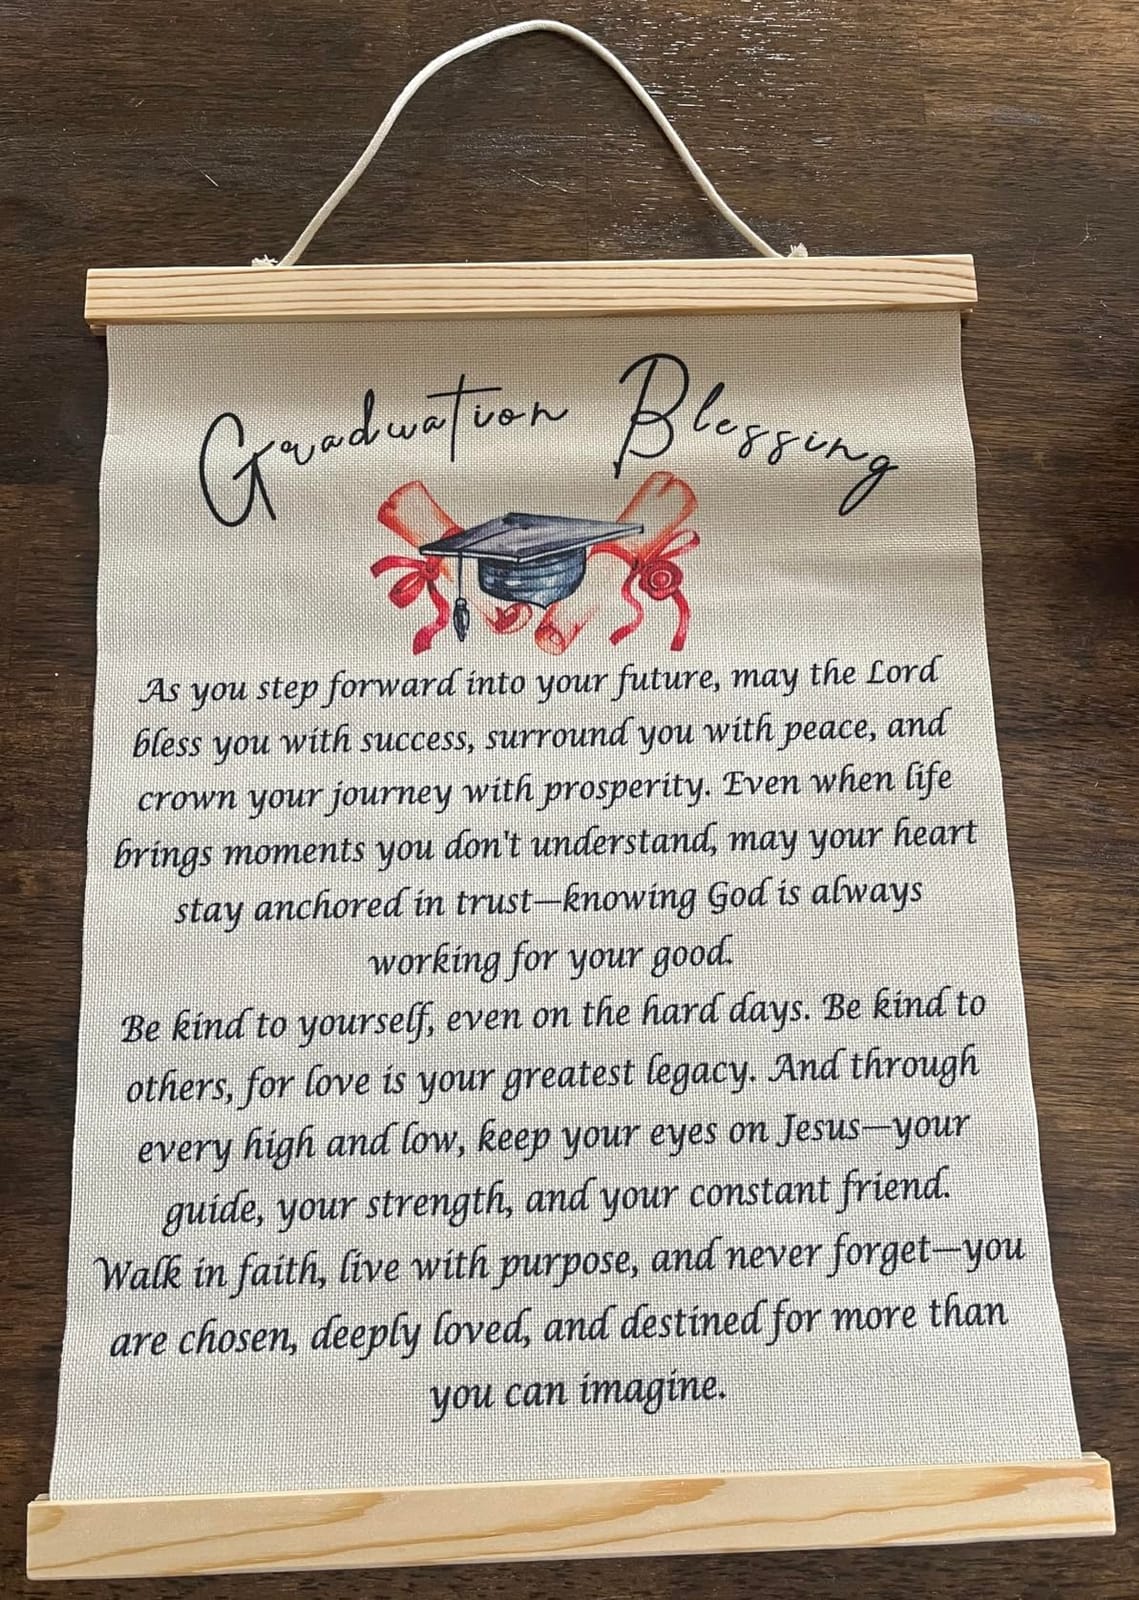 Graduation Blessing
As you step forward into your future, may the Lord
bless you with success, surround you with peace, and
crown your journey with prosperity. Even when life
brings moments you don't understand, may your heart
stay anchored in trust—knowing God is always
working for your good.
Be kind to yourself, even on the hard days. Be kind to
others, for love is your greatest legacy. And through
every high and low, keep your eyes on Jesus—your
guide, your strength, and your constant friend.
Walk in faith, live with purpose, and never forget—you
are chosen, deeply loved, and destined for more than
you can imagine.